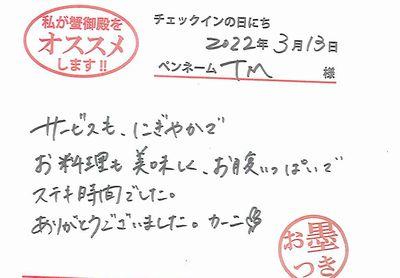 私が蟹御殿を
オススメ
します!!
チェックインの日にち
2022年3月13日
ペンネーム TM 様
サービスも、にぎやかで
お料理も美味しく、お腹いっぱいで
ステキ時間でした。
ありがとうございました。カーニ
お墨
つき